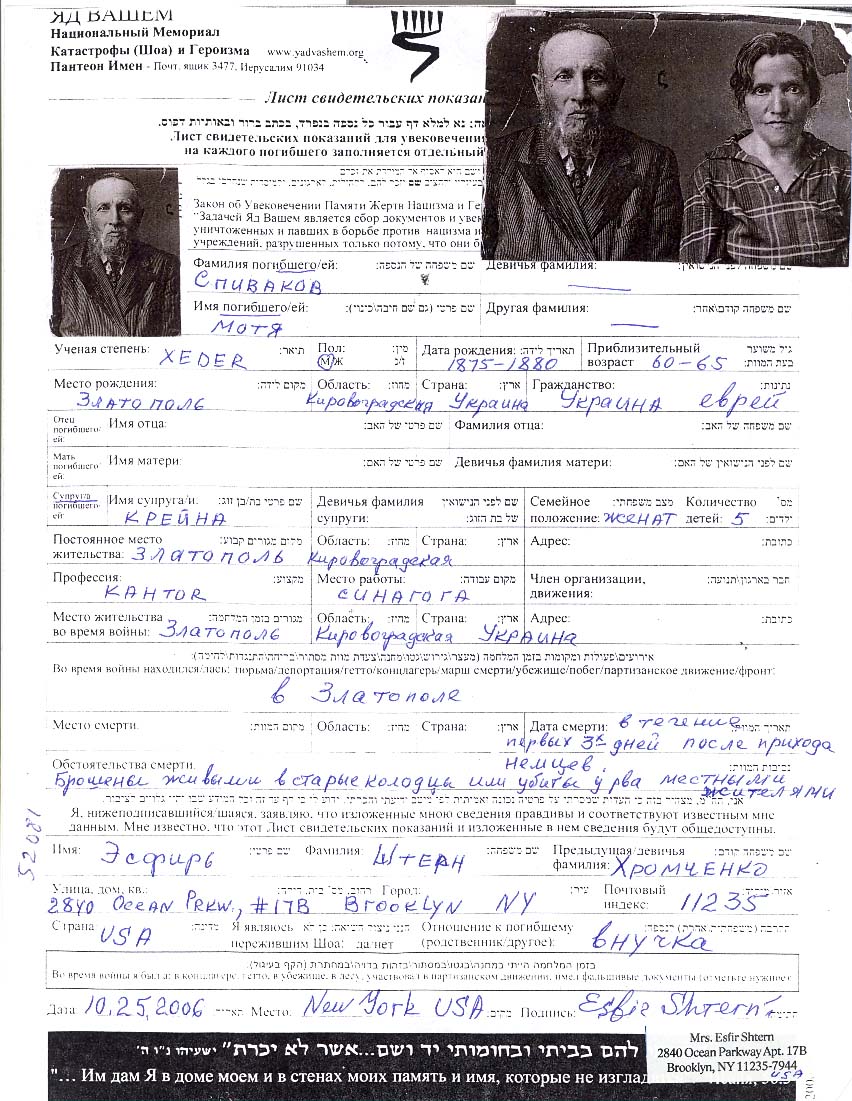 ЯД ВАШЕМ
Национальный Мемориал
Катастрофы (Шоа) и Героизма www.yadvashem.org
Пантеон Имен - Почт. ящик 3477, Иерусалим 91034
Лист свидетельских показан
נא למלא דף עבור כל נספה בנפרד, בכתב ברור ובאותיות דפוס.
Лист свидетельских показаний для увековечени
на каждого погибшего заполняется отдельный
Закон об Увековечении Памяти Жертв Нацизма и Ге
"Задачей Яд Вашем является сбор документов и увек
уничтоженных и павших в борьбе против нацизма и
учреждений, разрушенных только потому, что они б
Фамилия погибшего/ей: שם משפחה של הנספה: Девичья фамилия: שם משפחה לפני הנישואין:
Спиваков
Имя погибшего/ей: שם פרטי (גם שם חיבה\כינוי): Другая фамилия: שם משפחה קודם\אחר:
Мотя
Ученая степень: XEDER תואר: Пол: מין: М/Ж ז/נ Дата рождения: תאריך לידה: 1875-1880 Приблизительный возраст 60-65 גיל משוער בעת המוות:
Место рождения: מקום לידה: Область: מחוז: Страна: ארץ: Гражданство: נתינות:
Златополь Кировоградская Украина Украина еврей
Отец погибшего/ей: Имя отца: שם פרטי של האב: Фамилия отца: שם משפחה של האב:
Мать погибшего/ей: Имя матери: שם פרטי של האם: Девичья фамилия матери: שם לפני הנישואין של האם:
Супруга погибшего/ей: Имя супруга/и: שם פרטי בת/בן זוג: Девичья фамилия שם לפני הנישואין Семейное מצב משפחתי: Количество מס'
Крейна супруги: של בת הזוג: положение: женат детей: 5 ילדים:
Постоянное место מקום מגורים קבוע: Область: מחוז: Страна: ארץ: Адрес: כתובת:
жительства: Златополь Кировоградская
Профессия: מקצוע: Место работы: מקום עבודה: Член организации, חבר בארגון\תנועה:
Кантор синагога движения:
Место жительства מגורים בזמן המלחמה: Область: מחוז: Страна: ארץ: Адрес: כתובת:
во время войны: Златополь Кировоградская Украина
Во время войны находился/лась: тюрьма/депортация/гетто/концлагерь/марш смерти/убежище/побег/партизанское движение/фронт:
в Златополе
Место смерти: מקום המוות: Область: מחוז: Страна: ארץ: Дата смерти: в течение תאריך המוות:
первых 3х дней после прихода
Обстоятельства смерти: немцев. נסיבות המוות:
Брошены живыми в старые колодцы или убиты у рва местными
жителями
Я, нижеподписавшийся/шаяся, заявляю, что изложенные мною сведения правдивы и соответствуют известным мне
данным. Мне известно, что этот Лист свидетельских показаний и изложенные в нем сведения будут общедоступны.
52081
Имя: Эсфирь שם פרטי: Фамилия: Штерн שם משפחה: Предыдущая/девичья שם משפחה קודם:
фамилия: Хромченко
Улица, дом, кв.: Город: עיר: Почтовый
2840 Ocean Prkw., #17B Brooklyn NY индекс: 11235
Страна USA מדינה: Я являюсь Отношение к погибшему
пережившим Шоа: да/нет (родственник/другое): внучка
Дата 10.25.2006 תאריך Место: New York USA מקום: Подпись: Esfir Shtern
להם בביתי ובחומותי יד ושם...אשר לא יכרת" ישעיהו נ"ו ה'
"... Им дам Я в доме моем и в стенах моих память и имя, которые не изглад
Mrs. Esfir Shtern
2840 Ocean Parkway Apt. 17B
Brooklyn, NY 11235-7944
USA